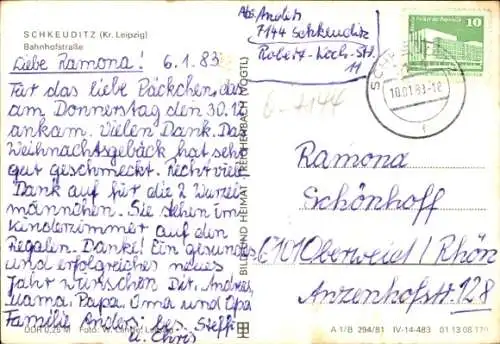 SCHKEUDITZ (Kr. Leipzig)
Bahnhofstraße
Liebe Ramona! 6.1.83
Für das liebe Päckchen, das
am Donnerstag den 30.12
ankam. Vielen Dank. Das
Weihnachtsgebäck hat sehr
gut geschmeckt. Recht viel
Dank auf für die 2 Wurzel
männchen. Sie stehen im
Kinderzimmer auf den
Regalen. Danke! Ein gesundes
und erfolgreiches neues
Jahr wünschen Dir, Andrea,
Mama, Papa, Oma und Opa
Familie Steffi
u. Chris
DDR 0,25 M Foto: W. Leipzig
BILD UND HEIMAT REICHENBACH (VOGTL)
Abs.
7144 Schkeuditz
Robert-Koch-Str.
11
10
10.01.83-18
7144
Ramona
Schönhoff
6101 Oberweid / Rhön
Anzenhofstr. 128
A 1/B 294/81 IV-14-483 01 13 08 179